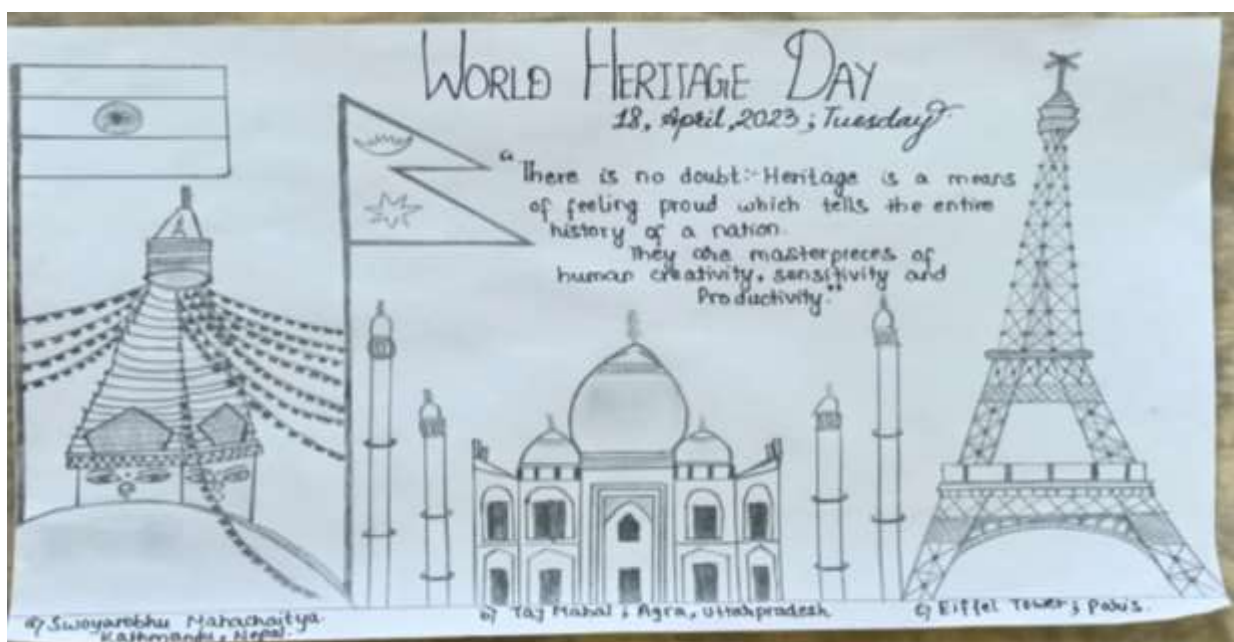 WORLD HERITAGE DAY
18, April, 2023 ; Tuesday
"There is no doubt:- Heritage is a means
of feeling proud which tells the entire
history of a nation.
They are masterpieces of
human creativity, sensitivity and
Productivity."
a) Swoyambhu Mahachaitya
Kathmandu, Nepal.
b) Taj Mahal ; Agra, Uttarpradesh
c) Eiffel Tower ; Paris.